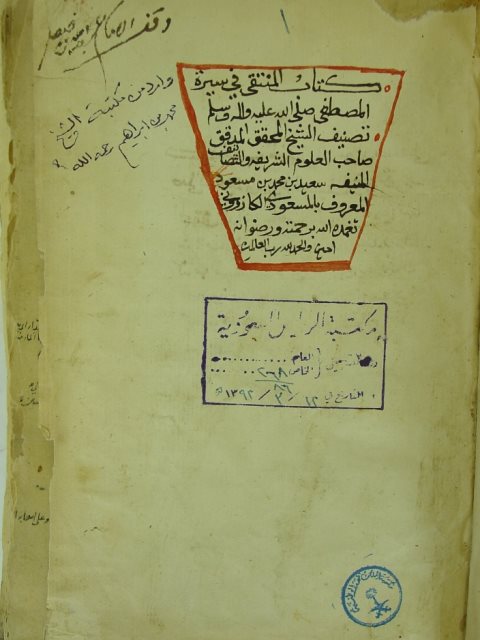 وقف
وارد من مكتبة الشيخ
محمد بن ابراهيم رحمه الله
كتاب المنتقى في سيرة
المصطفى صلى الله عليه واله وسلم
تصنيف الشيخ المحقق المدقق
صاحب العلوم الشريفه والتصانيف
المنيفه سعيد بن محمد بن مسعود
المعروف بالمسعودي الكازروني
تغمده الله برحمته ورضوانه
امين والحمد لله رب العالمين
مكتبة الرياض السعودية
العام
الخاص ٢٦٨
٨٦
التاريخ في ١٢ / ٣ / ١٣٩٢ هـ